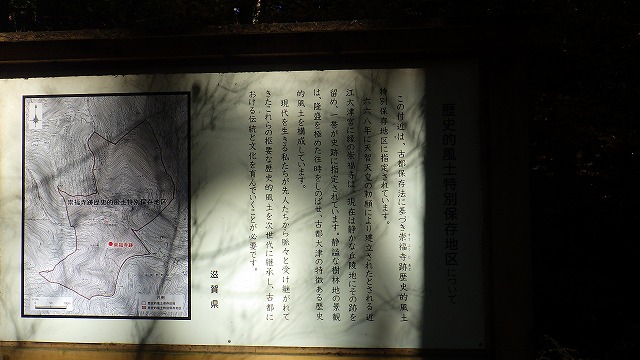 歴史的風土特別保存地区について
この付近は、古都保存法に基づき崇福寺跡歴史的風土
特別保存地区に指定されています。
六六八年に天智天皇の勅願により建立されたとされる近
江大津宮に縁の崇福寺は、現在は静かな丘陵地にその跡を
留め、一帯が史跡に指定されています。静謐な樹林地の景観
は、隆盛を極めた往時をしのばせ、古都大津の特徴ある歴史
的風土を構成しています。
現代を生きる私たちが先人たちから脈々と受け継がれて
きたこれらの枢要な歴史的風土を次世代に継承し、古都に
おける伝統と文化を育んでいくことが必要です。
滋賀県
崇福寺跡歴史的風土特別保存地区
崇福寺跡
凡例
歴史的風土保存区域
歴史的風土特別保存地区